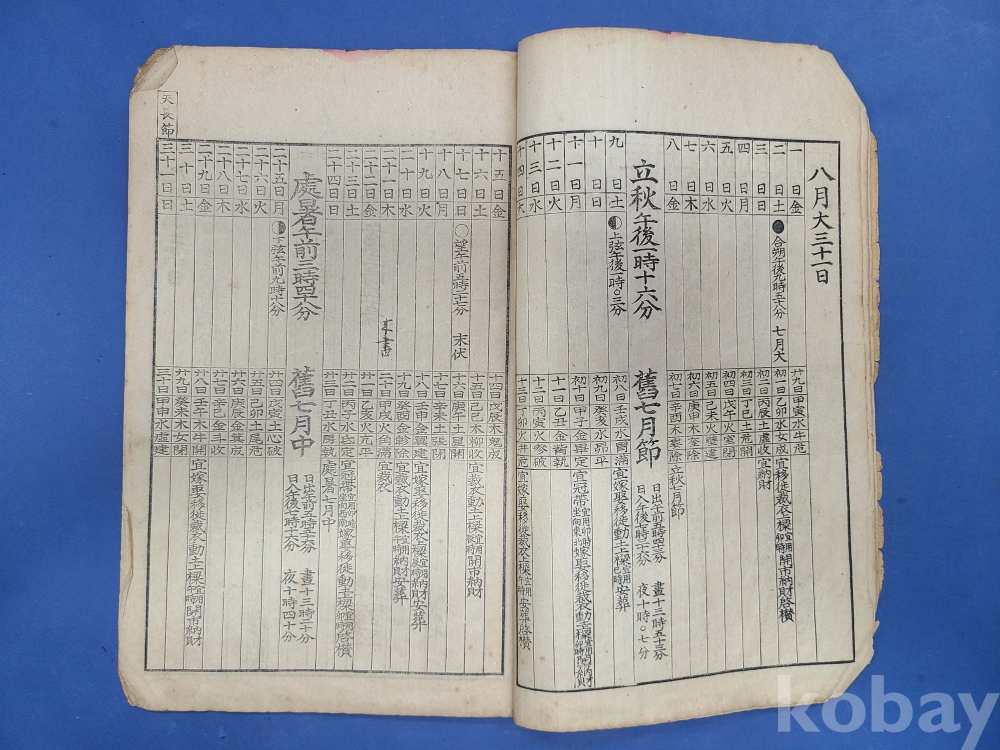 八月大三十一日
一日金 廿九日甲寅水牛危
二日土 合朔午後九時五十八分 七月大 初一日乙卯水女成宜嫁娶移徙裁衣上樑宜用卯時開市納財啓欑
三日日 初二日丙辰土虛收宜納財
四日月 初三日丁巳土危開
五日火 初四日戊午火室閉
六日水 初五日己未火壁建
七日木 初六日庚申木奎除
八日金 初七日辛酉木婁除立秋七月節
立秋午後一時十六分 舊七月節
日出午前五時四十三分 晝十三時五十三分
日入午後七時三十六分 夜十時〇七分
九日土 上弦午後一時〇三分 初八日壬戌水胃滿宜嫁娶移徙動土上樑宜用巳時安葬
十日日 初九日癸亥水昴平
十一日月 初十日甲子金畢定宜冠帶宜用卯時坐向東北嫁娶移徙裁衣動土上樑宜用卯時開市納財
十二日火 十一日乙丑金觜執
十三日水 十二日丙寅火參破
十四日木 十三日丁卯火井危宜嫁娶移徙裁衣上樑宜用午時安葬啓欑
十五日金 十四日戊辰木鬼成
十六日土 十五日己巳木柳收
十七日日 望午前五時二十七分 末伏 十六日庚午土星開宜裁衣動土上樑宜用辰時開市納財
十八日月 十七日辛未土張閉
十九日火 十八日壬申金翼建宜嫁娶移徙裁衣上樑宜用辰時納財安葬
二十日水 十九日癸酉金軫除宜裁衣動土上樑宜用午時納財安葬
二十一日木 二十日甲戌火角滿宜裁衣
二十二日金 廿一日乙亥火亢平
二十三日土 廿二日丙子水氐定宜冠帶宜用卯時坐向西南嫁娶移徙動土上樑宜用卯時啓欑
二十四日日 廿三日丁丑水房執處暑七月中
處暑午前三時四十八分 舊七月中
日出午前五時五十六分 晝十三時二十分
日入午後七時十六分 夜十時四十分
二十五日月 下弦午前九時十八分 廿四日戊寅土心破
二十六日火 廿五日己卯土尾危
二十七日水 廿六日庚辰金箕成
二十八日木 廿七日辛巳金斗收
二十九日金 廿八日壬午木牛開宜嫁娶移徙裁衣動土上樑宜用午時開市納財
三十日土 廿九日癸未木女閉
三十一日日 三十日甲申水虛建
天長節
kobay